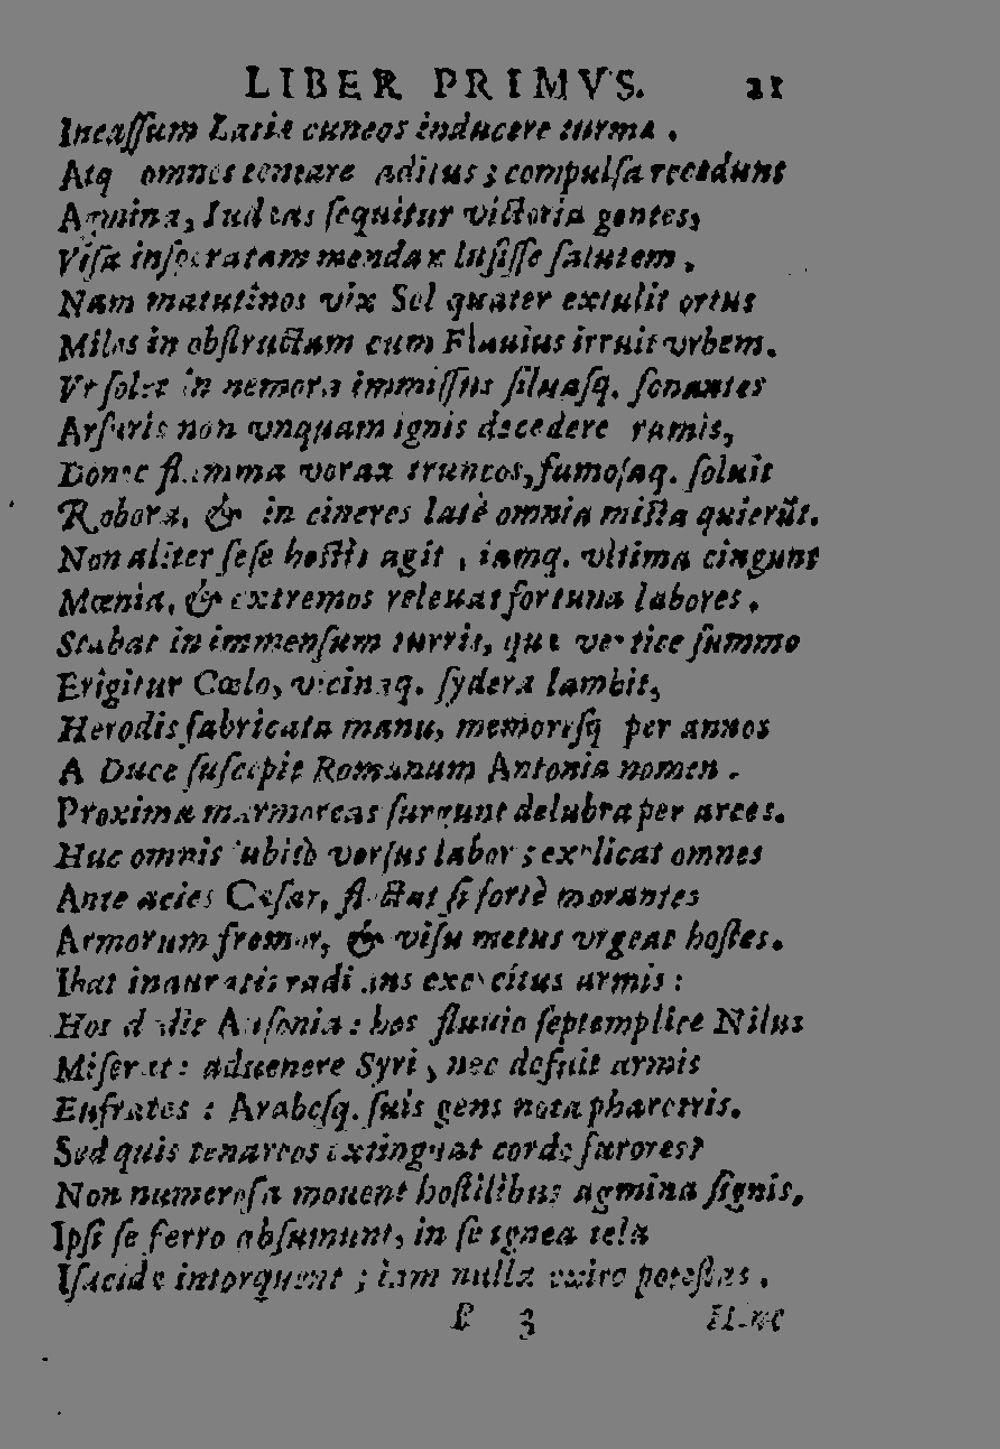 LIBER PRIMVS. 21
Incassum Latiæ cuneos inducere turmæ.
Atq omnes tentare aditus; compulsa recedunt
Agmina, Iudæas sequitur victoria gentes,
Visa insperatam mendax lusisse salutem.
Nam matutinos vix Sol quater extulit ortus
Miles in obstructam cum Flauius irruit vrbem.
Vt solet in nemora immissus siluasq. sonantes
Arsuris non vnquam ignis decedere ramis,
Donec flamma vorax truncos, fumosaq. soluit
Robora, & in cineres latè omnia mista quierũt.
Non aliter sese hostis agit, iamq. vltima cingunt
Mœnia, & extremos releuat fortuna labores.
Stabat in immensum turris, quæ vertice summo
Erigitur Cœlo, vicinaq. sydera lambit,
Herodis fabricata manu, memoresq per annos
A Duce suscepit Romanum Antonia nomen.
Proxima marmoreas surgunt delubra per arces.
Huc omnis subitò versus labor; explicat omnes
Ante acies Cæsar, flectat si fortè morantes
Armorum fremor, & visu metus vrgeat hostes.
Ibat inauratis radians exercitus armis:
Hos dedit Ausonia: hos fluuio septemplice Nilus
Miserat: aduenere Syri, nec defuit armis
Eufrates: Arabesq. suis gens nota pharetris.
Sed quis tenareos extinguat corde furores?
Non numerosa mouent hostilibus agmina signis,
Ipsi se ferro absumunt, in se ignea tela
Isacidæ intorquent; iam nulla exire potestas.
B 3 Hinc